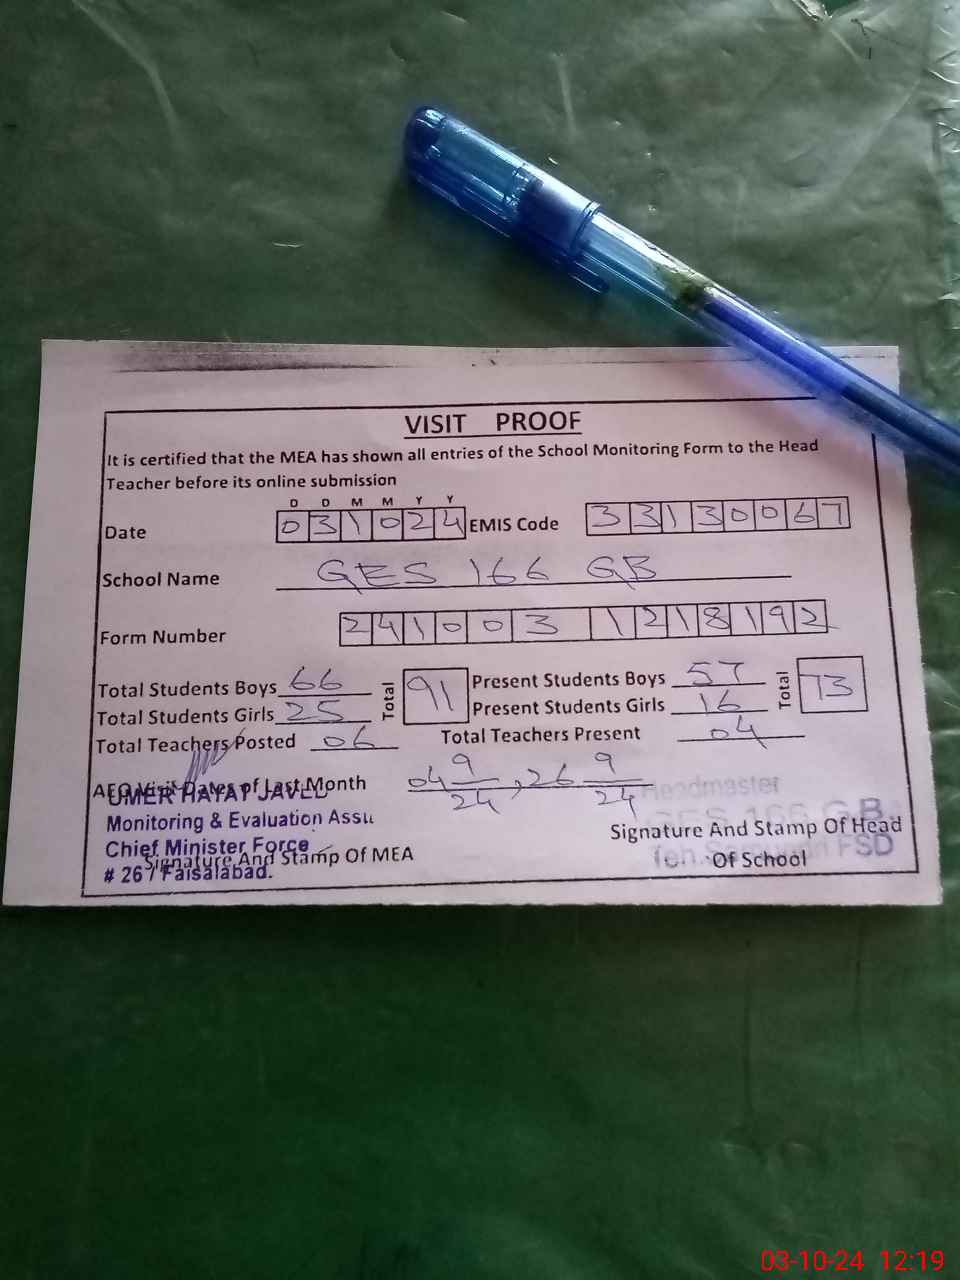 VISIT PROOF
It is certified that the MEA has shown all entries of the School Monitoring Form to the Head
Teacher before its online submission
D D M M Y Y
Date 031024 EMIS Code 33130067
School Name GES 166 GB
Form Number 2410031218192
Total Students Boys 66 Total 91 Present Students Boys 57 Total 73
Total Students Girls 25 Present Students Girls 16
Total Teachers Posted 06 Total Teachers Present 04
AEO Visit Dates of Last Month 04 9/24, 26 9/24
UMER HAYAT JAVED
Monitoring & Evaluation Assi
Chief Minister Force
# 267 Faisalabad.
Signature And Stamp Of MEA
Headmaster
GES 166 G.B.
Teh. Samundri FSD
Signature And Stamp Of Head
Of School
03-10-24 12:19